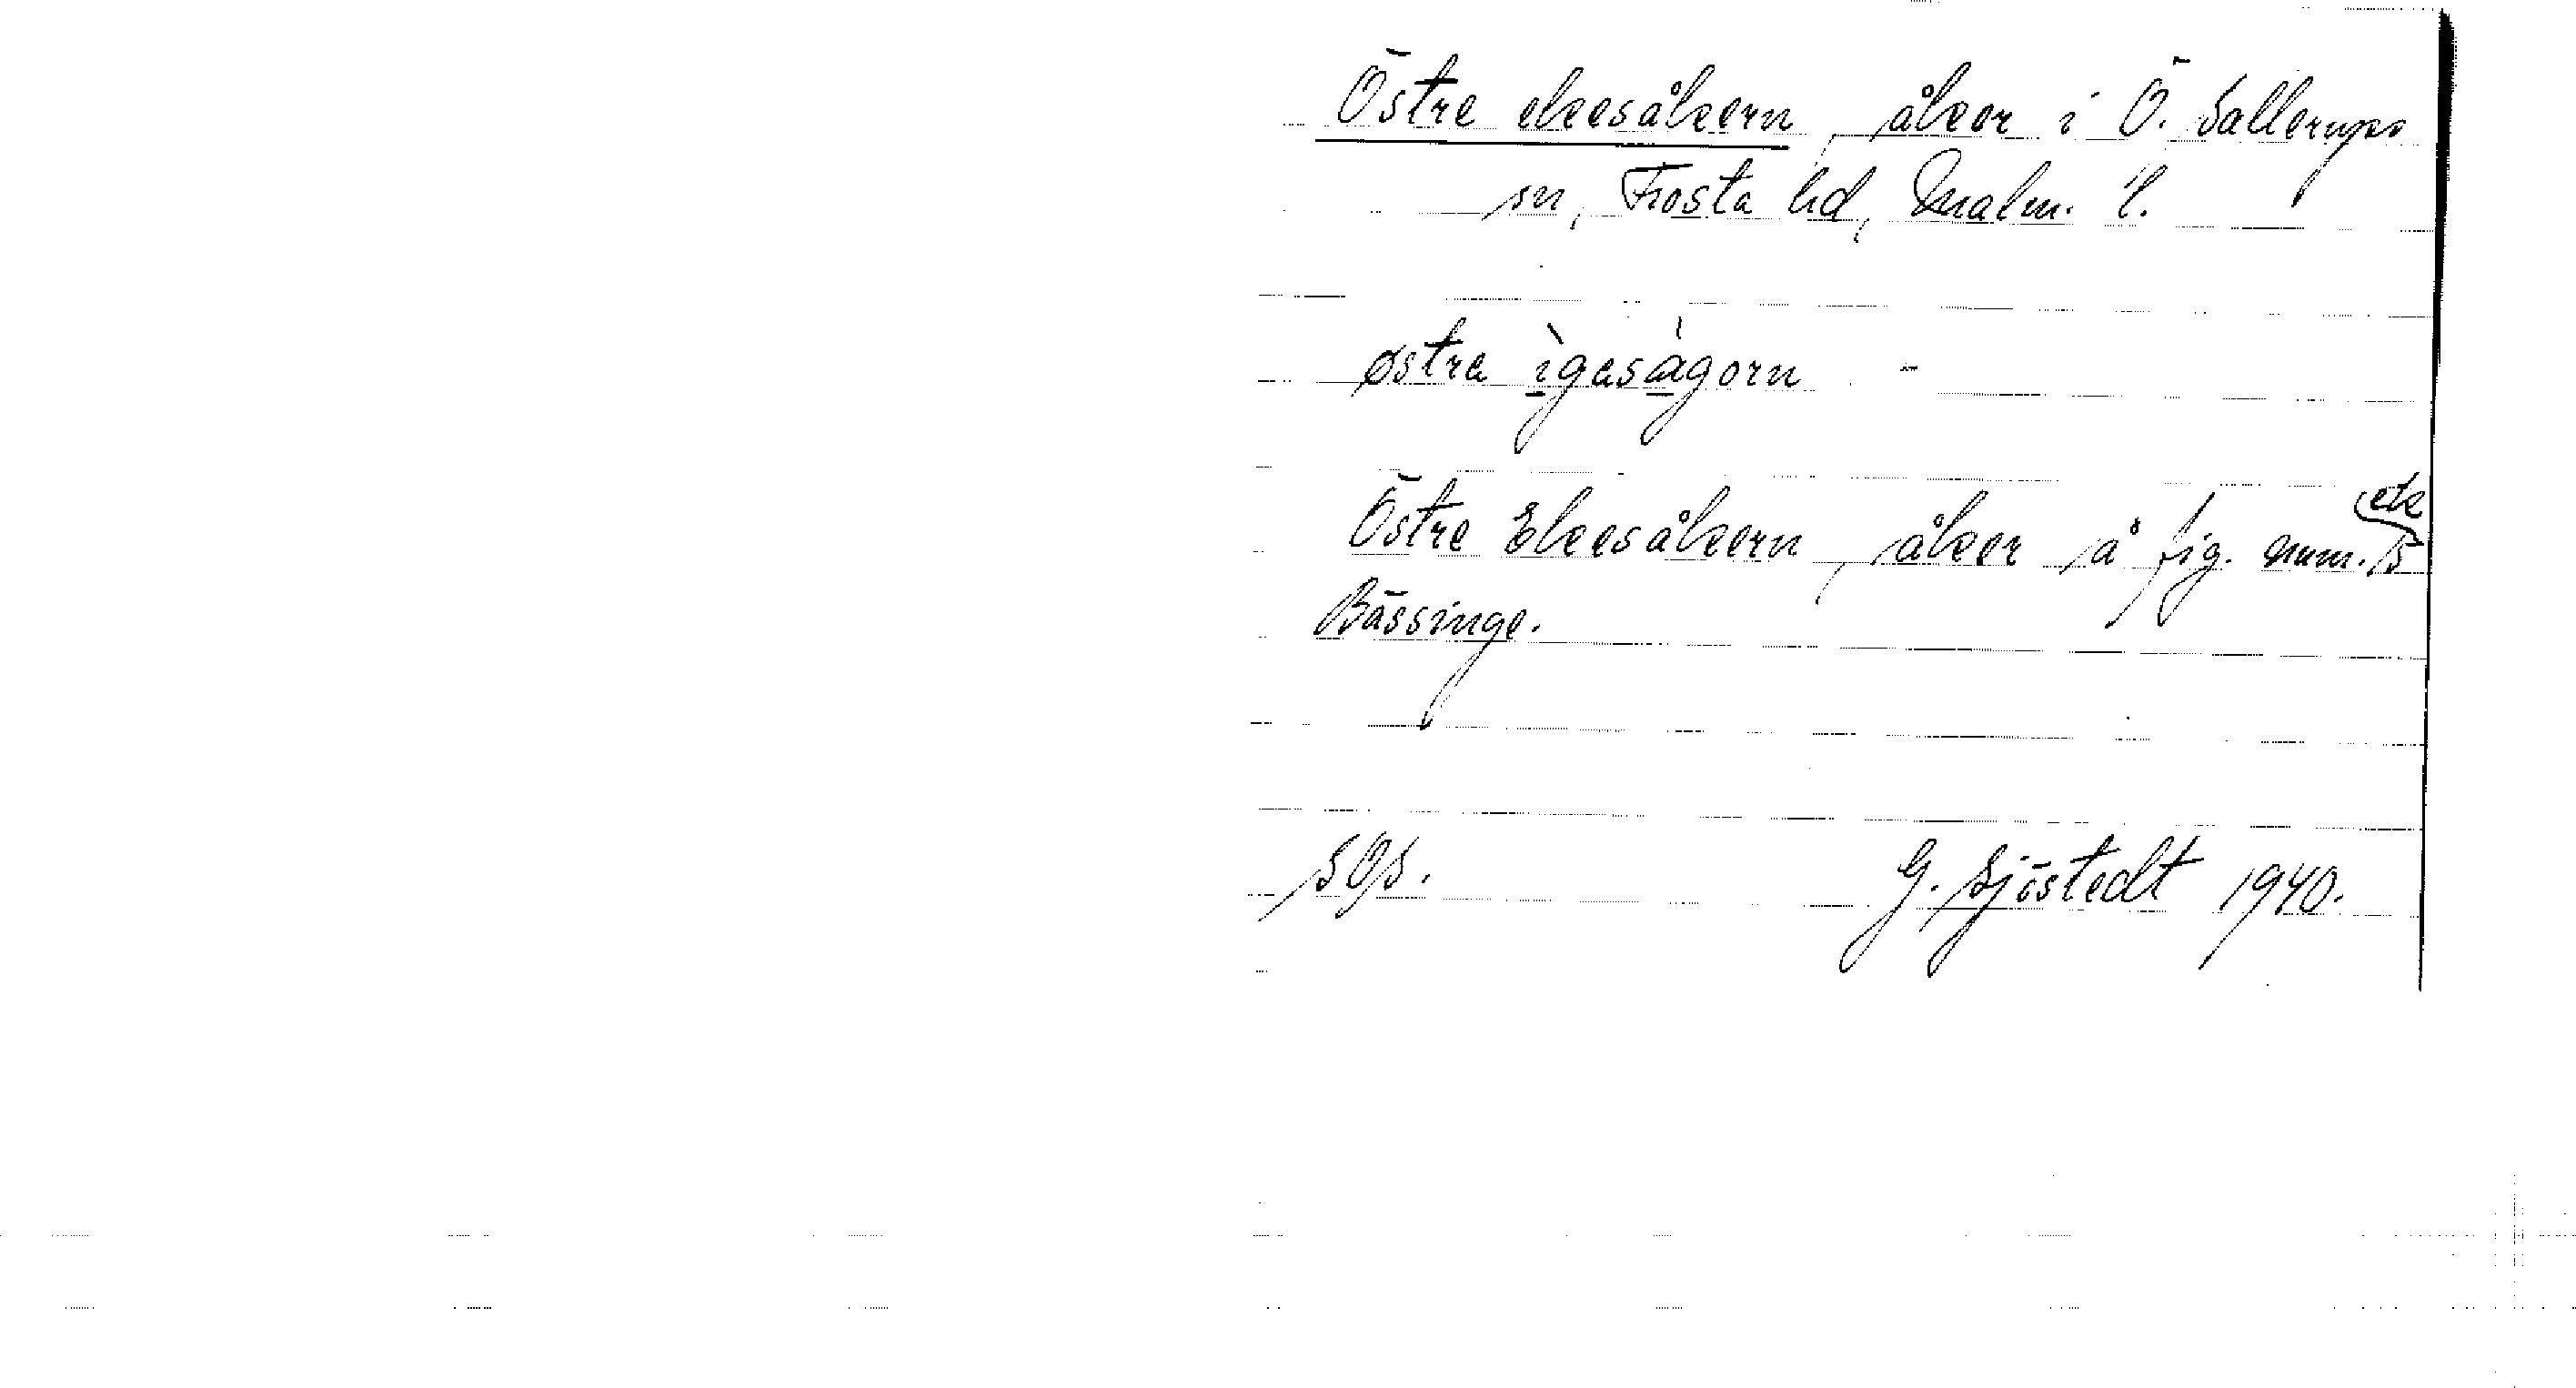 Östre ekesåkern, åker i Ö. Sallerups
sn, Frosta hd, Malm. l.
østra ìgasàgorn -
Östre Ekesåkern, åker å fig. num. 15 etc
Bässinge.
SOS.
G. Sjöstedt 1940.